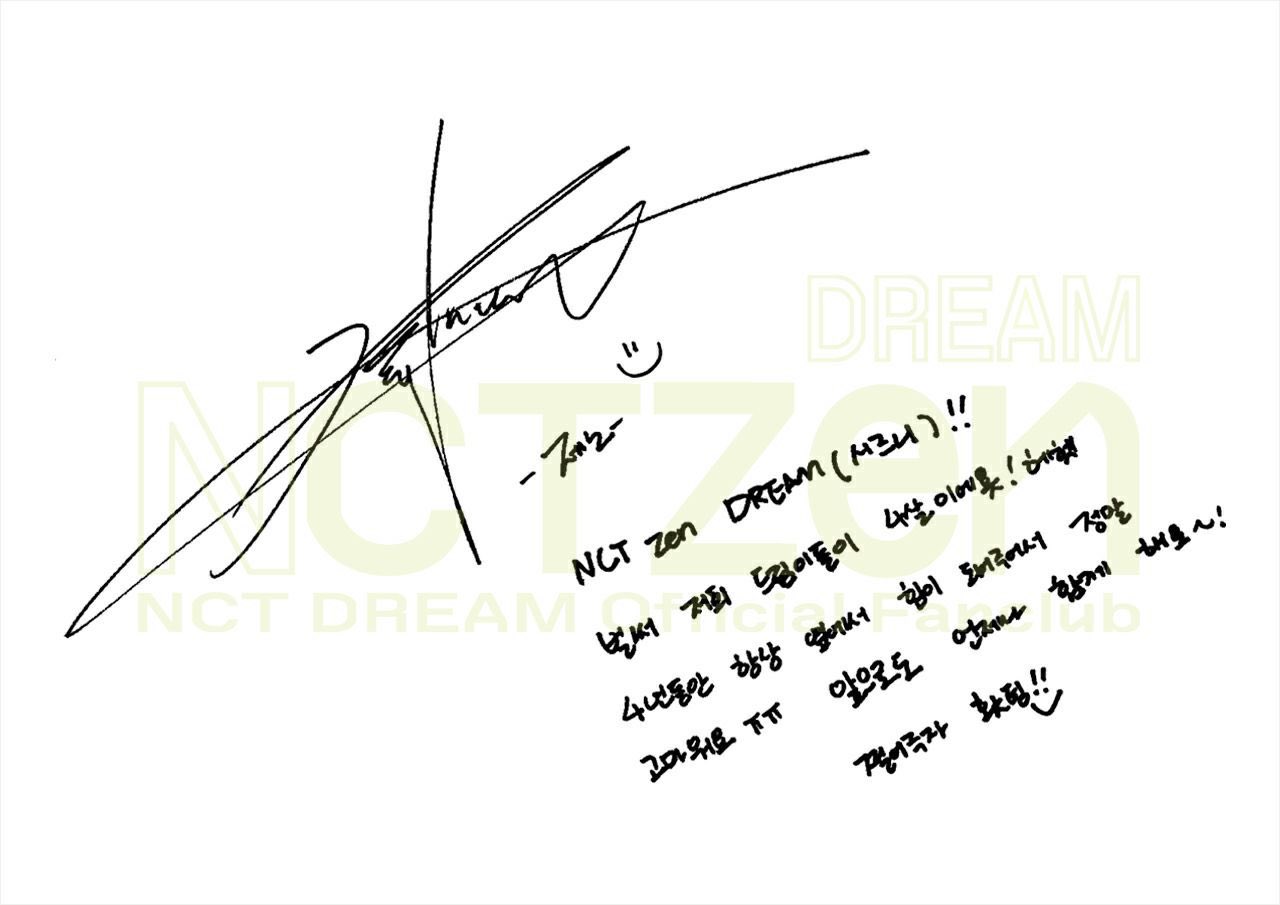 DREAM
NCTzen
NCT DREAM Official Fanclub
-제노-
NCT zen DREAM (시즈니)!!
벌써 저희 드림이들이 4살이에욧! 헤헿
4년동안 항상 옆에서 힘이 돼주어서 정말
고마워요 ㅠㅠ 앞으로도 언제나 함께 해요~!
쩔어주자 홧팅!!